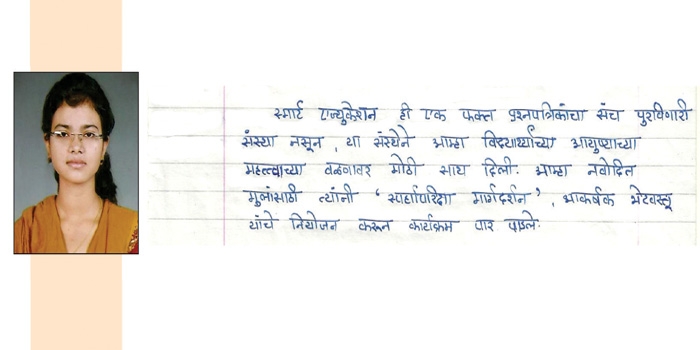 स्मार्ट एज्युकेशन ही एक फक्त प्रश्नपत्रिकांचा संच पुरविणारी
संस्था नसून, या संस्थेने आम्हा विद्यार्थ्यांच्या आयुष्याच्या
महत्त्वाच्या वळणावर मोठी साथ दिली. आम्हा नवोदित
मुलांसाठी त्यांनी ' स्पर्धापरिक्षा मार्गदर्शन ', आकर्षक भेटवस्तू
यांचे नियोजन करून कार्यक्रम पार पाडले.